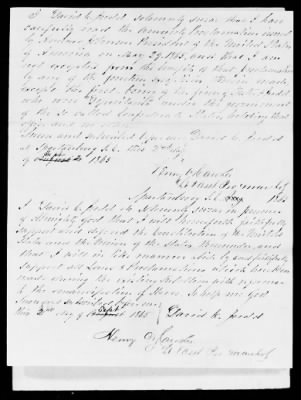 I David C. Judd solemnly swear that I have
carefully read the amnesty Proclamation issued
by Andrew Johnson President of the United States
of America on May 29, 1865, and that I am
not excepted from the benefits of that Proclamation
by any of the fourteen exceptions therein made
except the first being of having
who were under the government
of the so called Confederate States, holding that
office
Sworn and subscribed before me David C. Judd
at Spartanburg S.C. this 2nd day
of Sept 1865
Henry
Lt and Pro marshal
Spartanburg S.C. 1865
I David C. Judd do solemnly swear in presence
of Almighty God that I will henceforth faithfully
support and defend the Constitution of the United
States and the Union of the States thereunder, and
that I will in like manner abide by and faithfully
support all Laws & Proclamations which have been
made during the existing rebellion with reference
to the emancipation of slaves. So help me God
Sworn and subscribed before me
this 2nd day of Sept 1865 David C. Judd
Henry
Lt and Pro marshal